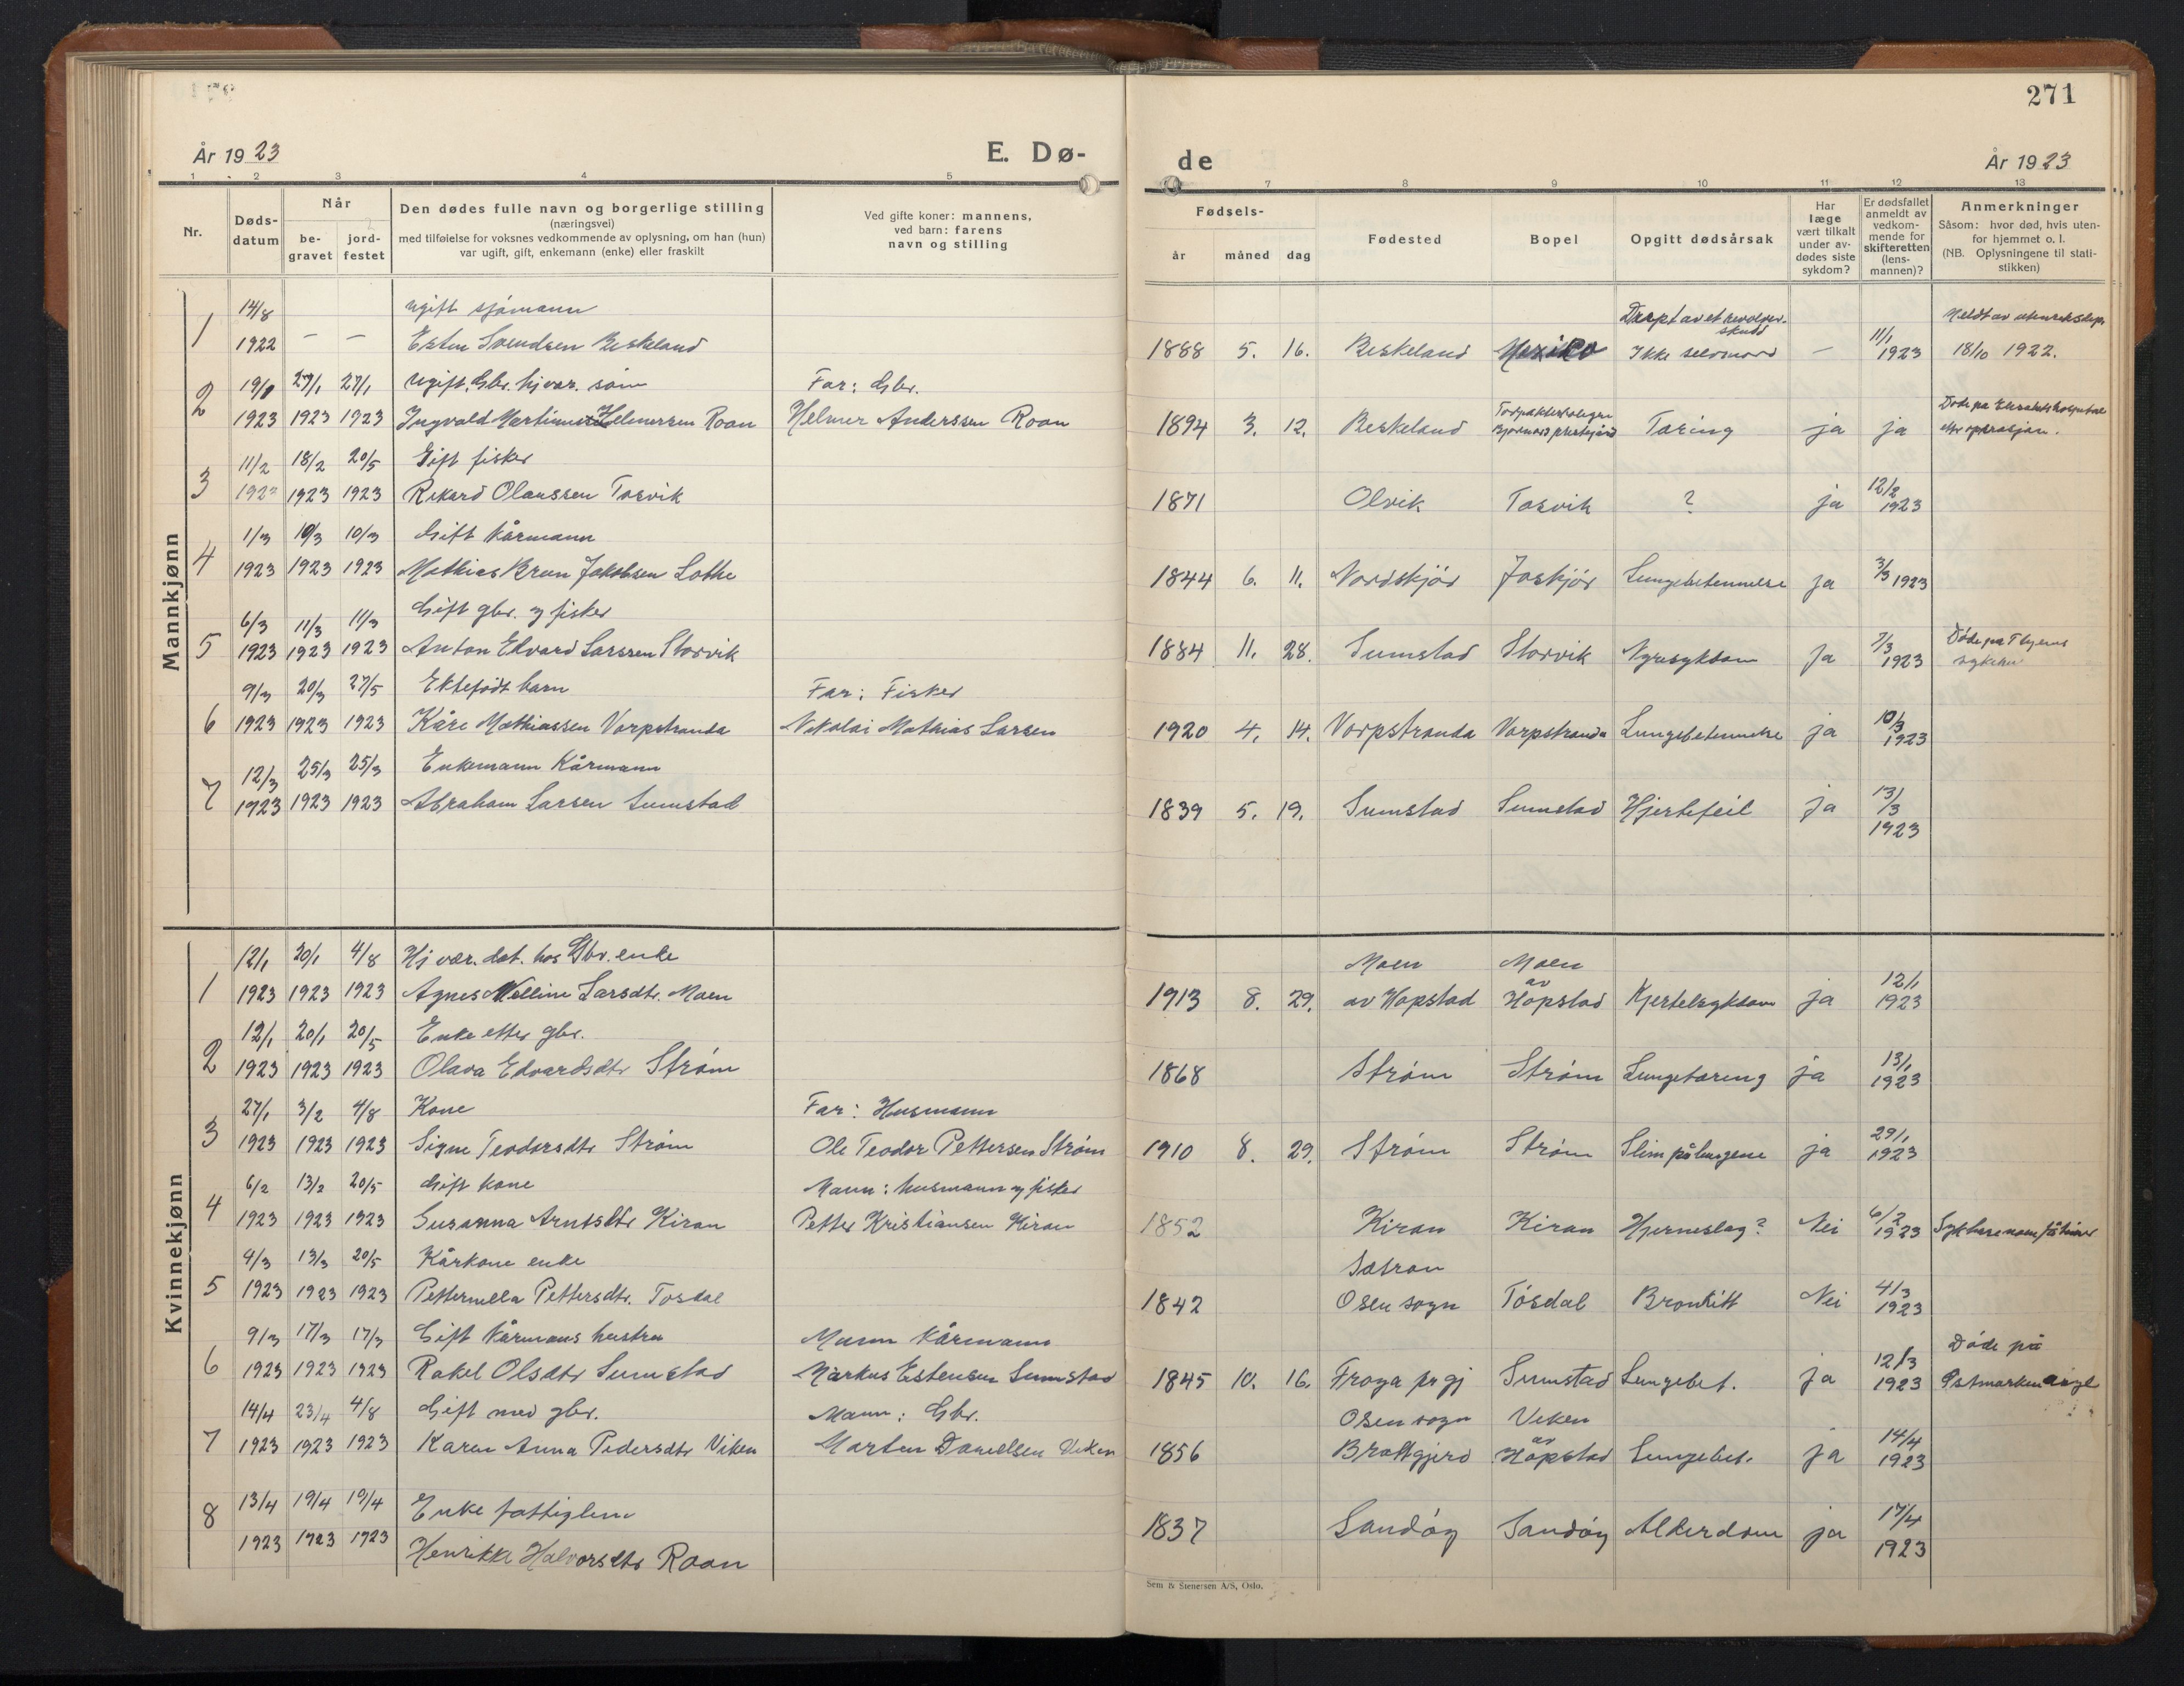 271
År 1923
E. Dø-
de
År 1923
1 2 3 4 5
7 8 9 10 11 12 13
Nr.
Døds-
datum
Når
be-
gravet
jord-
festet
Den dødes fulle navn og borgerlige stilling
(næringsvei)
med tilføielse for voksnes vedkommende av oplysning, om han (hun)
var ugift, gift, enkemann (enke) eller fraskilt
Ved gifte koner: mannens,
ved barn: farens
navn og stilling
Fødsels-
år måned dag
Fødested
Bopel
Opgitt dødsårsak
Har
læge
vært tilkalt
under av-
dødes siste
sykdom?
Er dødsfallet
anmeldt av
vedkom-
mende for
skifteretten
(lens-
mannen)?
Anmerkninger
Såsom: hvor død, hvis uten-
for hjemmet o. l.
(NB. Oplysningene til stati-
stikken)
Mannkjønn
14/8 ugift sjømann Drept av et revolver-
skudd
1 1922 — — Esten Svendsen Beskeland 1888 5. 16. Beskeland Mexiko Ikke selvmord — 11/1 1923 18/10 1922.
2 27/1 27/1 Ugift. Gbr. hj.vær. sønn Far: Gbr.
1923 1923 1923 Ingvald Helmersen Roan Helmer Anderssen Roan 1894 3. 12. Beskeland Tæring ja ja
etter operasjon.
3 11/2 18/2 20/5 Gift fisker
1923 1923 1923 Rikard Olaussen Tosvik 1871 Olvik Tosvik ? ja 12/2 1923
4 1/3 10/3 10/3 Gift kårmann
1923 1923 1923 Mathias Brun Jakobsen Lothe 1844 6. 11. Nordskjør Joskjør Lungebetennelse ja 3/3 1923
5 6/3 11/3 11/3 Gift gbr. og fisker
1923 1923 1923 Anton Edvard Larssen Storvik 1884 11. 28. Sumstad Storvik Nyresykdom ja 7/3 1923 Døde på
6 9/3 20/3 27/5 Ektefødt barn Far: Fisker
1923 1923 1923 Kåre Mathiassen Vorpstranda Nikolai Mathias Larsen 1920 4. 14. Vorpstranda Vorpstranda Lungebetennelse ja 10/3 1923
7 12/3 25/3 25/3 Enkemann Kårmann
1923 1923 1923 Abraham Larsen Sumstad 1839 5. 19. Sumstad Sumstad Hjertefeil ja 13/3 1923
Kvinnekjønn
12/1 20/1 4/8 Hj vær. dat. hos Gbr. enke Moen Moen
1 1923 1923 1923 Agnes Larsdtr. Moen 1913 8. 29. av Hopstad av Hopstad Kjertelsykdom ja 12/1 1923
2 12/1 20/1 20/5 Enke etter gbr.
1923 1923 1923 Olava Edvardsdtr Strøm 1868 Strøm Strøm Lungetæring ja 13/1 1923
3 27/1 3/2 4/8 Kone Far: Husmann
1923 1923 1923 Signe Teodorsdtr Strøm Ole Teodor Pettersen Strøm 1910 8. 29. Strøm Strøm Slim på lungene ja 29/1 1923
4 6/2 13/2 20/5 Gift kone Mann: husmann og fisker
1923 1923 1923 Susanna Arntsdtr Kiran Petter Kristiansen Kiran 1852 Kiran Kiran Hjerneslag? Nei 6/2 1923 Syk bare noen få timer
4/3 13/3 20/5 Kårkone enke Sætran
5 1923 1923 1923 Petternella Pettersdtr. Tosdal 1842 Osen sogn Tøsdal Bronkitt Nei 4/3 1923
6 9/3 17/3 17/3 Gift kårmans hustru Mann Kårmann Døde på
1923 1923 1923 Rakel Olsdtr Sumstad Markus Estensen Sumstad 1845 10. 16. Frøya prgj Sumstad Lungebet. ja 12/3 1923 Østmarken asyl
14/4 23/4 4/8 Gift med gbr. Mann: Gbr. Osen sogn Viken
7 1923 1923 1923 Karen Anna Pedersdtr Viken Morten Danielsen Viken 1856 Brattgjerd av Hopstad Lungebet. ja 14/4 1923
8 13/4 19/4 19/4 Enke fattiglem
1923 1923 1923 Henrikke Halvorsdtr Roan 1837 Sandøy Sandøy Alderdom ja 17/4 1923
Sem & Stenersen A/S, Oslo.